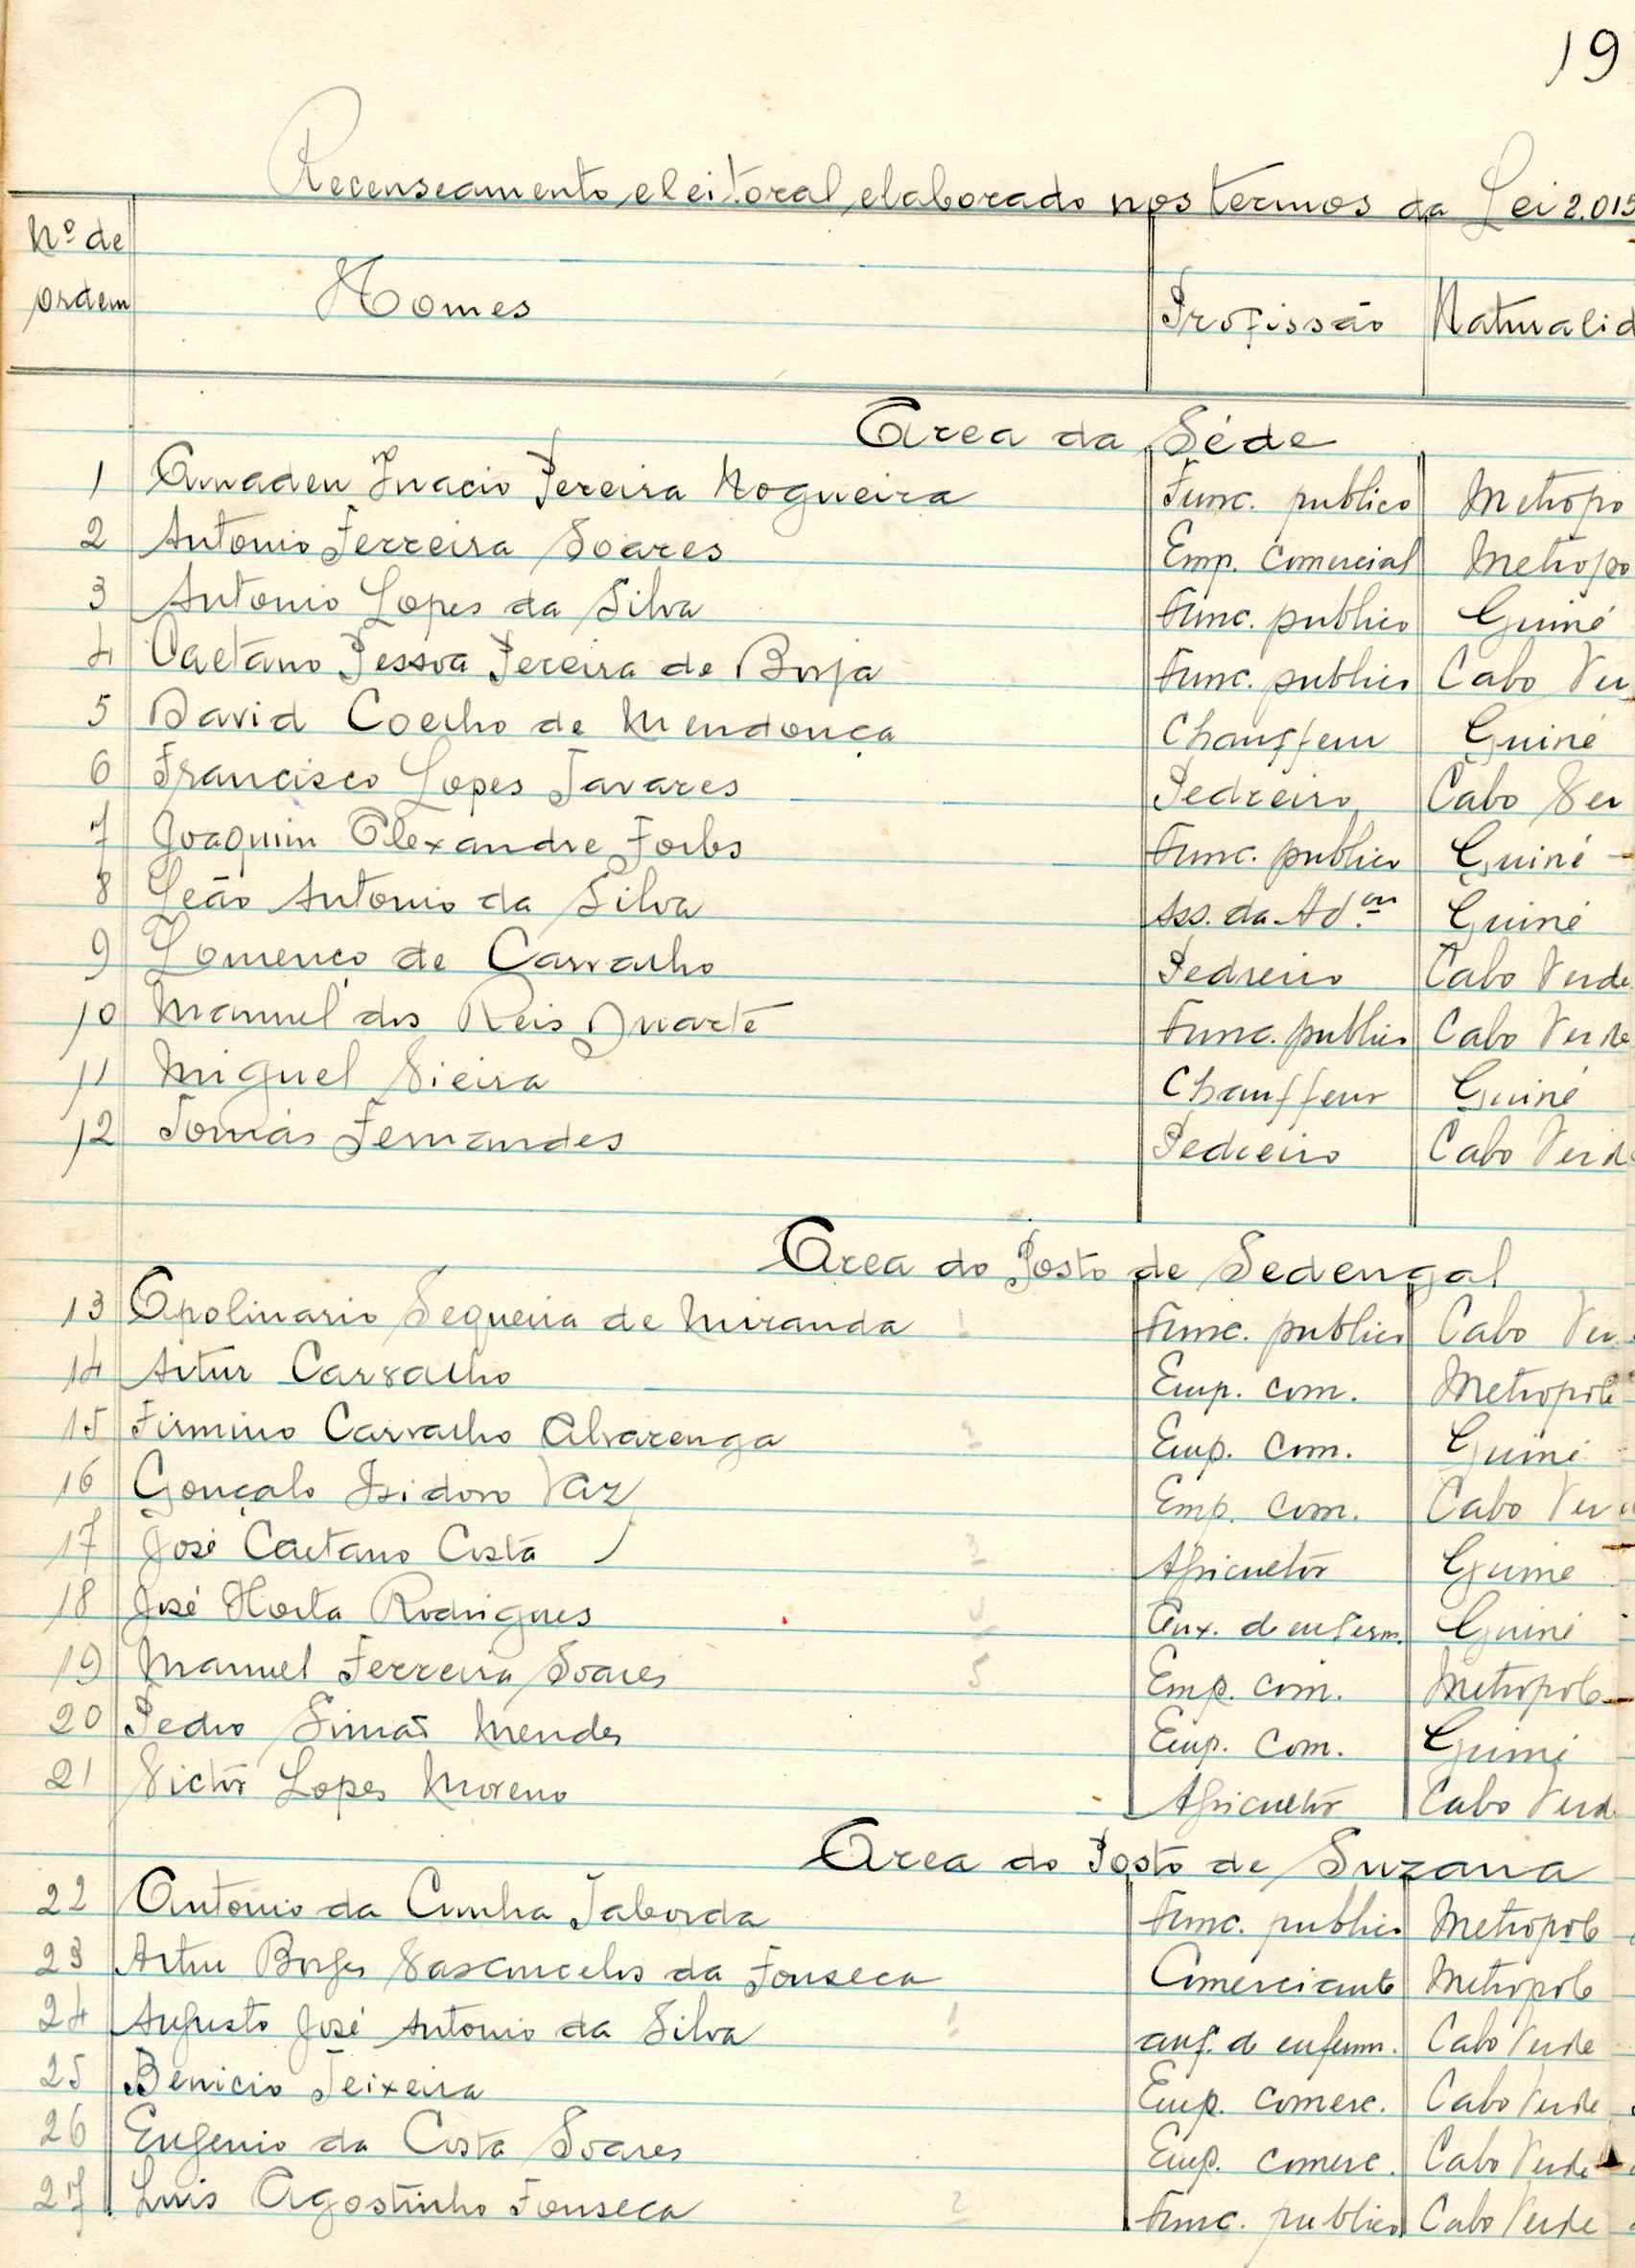 19
Recenseamento eleitoral elaborado nos termos da Lei 2.015
Nº de ordem Nomes Profissão Naturalid
Area da Séde
1 Amadeu Inacio Pereira Nogueira Func. publico Metropo
2 Antonio Ferreira Soares Emp. Comercial Metropo
3 Antonio Lopes da Silva Func. publico Guiné
4 Caetano Pessoa Pereira de Borja Func. publico Cabo Ver
5 David Coelho de Mendonça Chauffeur Guiné
6 Francisco Lopes Tavares Pedreiro Cabo Ver
7 Joaquim Alexandre Forbs Func. publico Guiné
8 Leão Antonio da Silva Ass. da Adon Guiné
9 Lourenço de Carvalho Pedreiro Cabo Verde
10 Manuel dos Reis Duarte Func. publico Cabo Verde
11 Miguel Vieira Chauffeur Guiné
12 Tomás Fernandes Pedreiro Cabo Verd
Area do Posto de Sedengal
13 Apolinario Sequeira de Miranda 1 Func. publico Cabo Ver
14 Artur Carvalho Emp. com. Metropole
15 Firmino Carvalho Alvarenga Emp. com. Guiné
16 Gonçalo Isidoro Vaz Emp. com. Cabo Ver
17 José Caetano Costa 3 Agricultôr Guiné
18 José Horta Rodrigues Aux. de enferm. Guiné
19 Manuel Ferreira Soares 5 Emp. com. Metropole
20 Pedro Simão Mendes Emp. com. Guiné
21 Victôr Lopes Moreno Agricultôr Cabo Verd
Area do Posto de Suzana
22 Antonio da Cunha Taborda Func. publico Metropole
23 Artur Borges Vasconcelos da Fonseca Comerciante Metropole
24 Augusto José Antonio da Silva 1 aux. de enferm. Cabo Verde
25 Benicio Teixeira Emp. comerc. Cabo Verde
26 Eugenio da Costa Soares Emp. comerc. Cabo Verde
27 Luis Agostinho Fonseca 2 Func. publico Cabo Verde